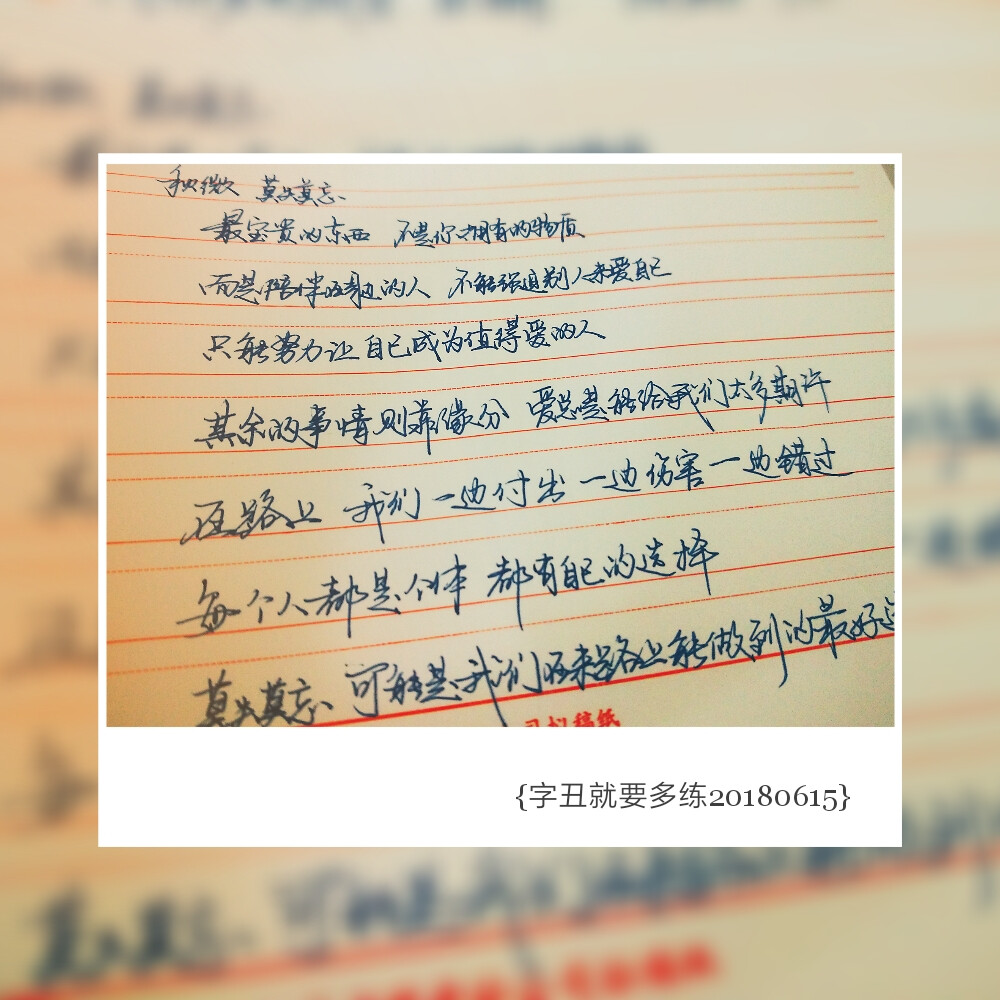 秋微 莫失莫忘
最宝贵的东西 不是你拥有的物质
而是陪伴在身边的人 不能强迫别人来爱自己
只能努力让自己成为值得爱的人
其余的事情则靠缘分 爱总是能给我们太多期许
在路上 我们一边付出 一边伤害 一边错过
每个人都是个体 都有自己的选择
莫失莫忘、可能是我们在来路上能做到的最好
稿纸
{字丑就要多练20180615}